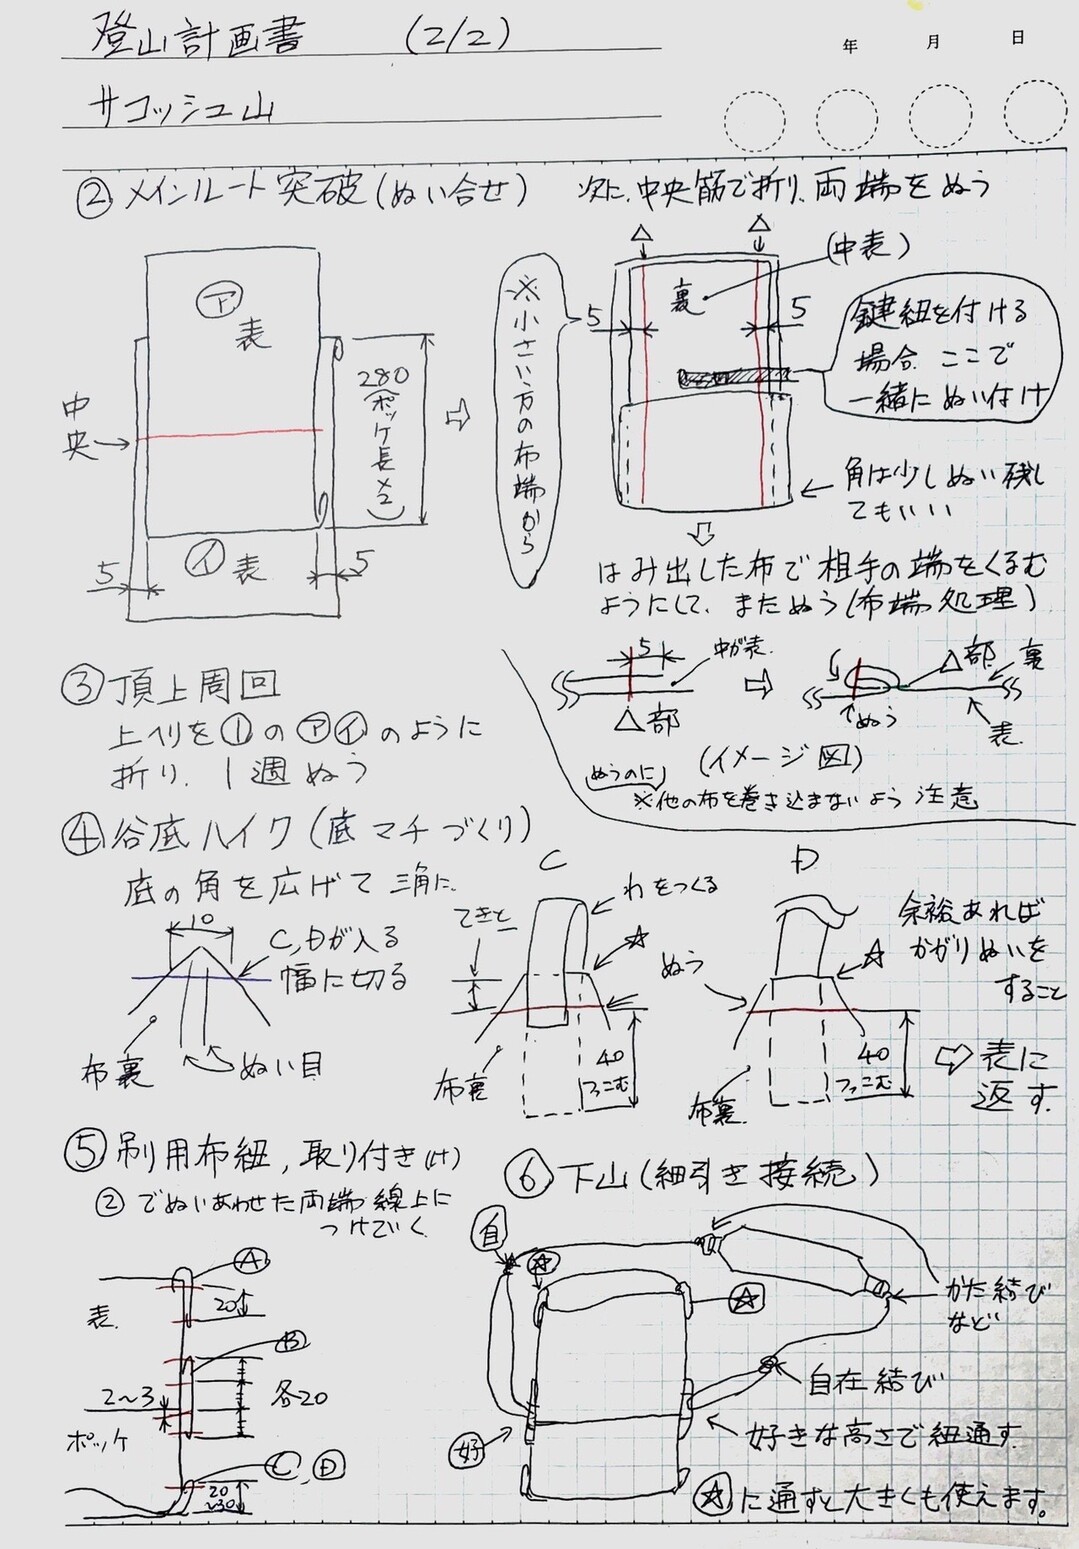 登山計画書 (2/2)
年 月 日
サコッシュ山
②メインルート突破(ぬい合せ)
次に、中央筋で折り、両端をぬう
㋐
表
中
央
280
(ポッケ長×2)
5
㋑表
5
※小さい方の布端から
△
△
(中表)
裏
5
5
鍵紐を付ける
場合、ここで
一緒にぬい付け
角は少しぬい残し
てもいい
はみ出した布で相手の端をくるむ
ようにして、またぬう(布端処理)
5
中が表
△部
△部
裏
ぬう
表
(イメージ図)
ぬうのに
※他の布を巻き込まないよう注意
③頂上周回
上ヘリを①の㋐㋑のように
折り、1週ぬう
④谷底ハイク(底マチづくり)
底の角を広げて三角に
10
C,Dが入る
幅に切る
布裏
ぬい目
C
わをつくる
てきと
☆
ぬう
布裏
40
つっこむ
D
余裕あれば
かがりぬいを
すること
☆
40
つっこむ
布裏
表に
返す
⑤吊用布紐,取り付き(け)
②でぬいあわせた両端線上に
つけていく
Ⓐ
表
20
Ⓑ
2~3
各20
ポッケ
Ⓒ,Ⓓ
20
~30
⑥下山(細引き接続)
自
☆
☆
かた結び
など
自在結び
好
好きな高さで紐通す
☆に通すと大きくも使えます。